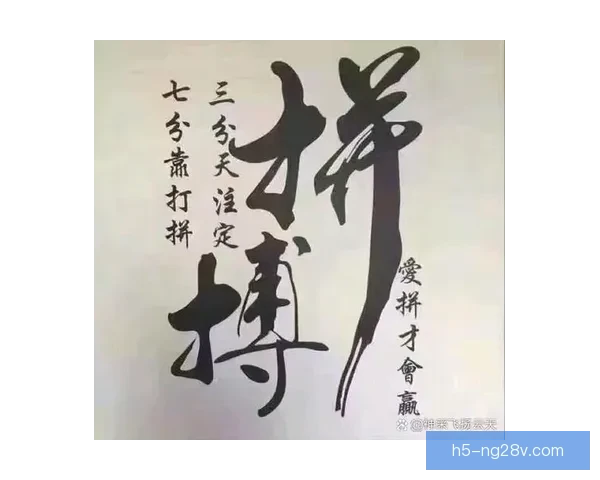 拼搏
三分天注定
七分靠打拼
愛拼才會贏
@神采飞扬云天
h5-ng28v.com